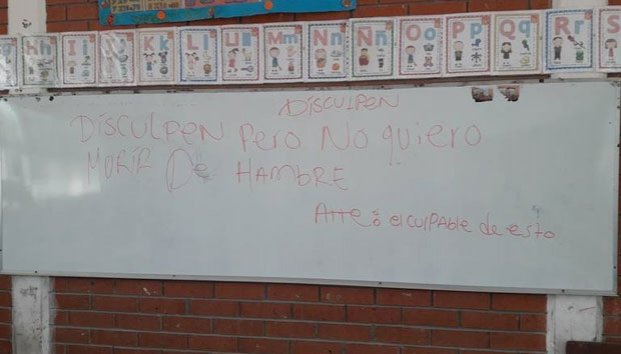 Hh Ii Jj Kk Ll LLll Mm Nn Ññ Oo Pp Qq Rr S
DISCULPEN
DISCULPEN PERO NO quiero
MORIR De HAMBRE
Atte: el cuLPABle de esto